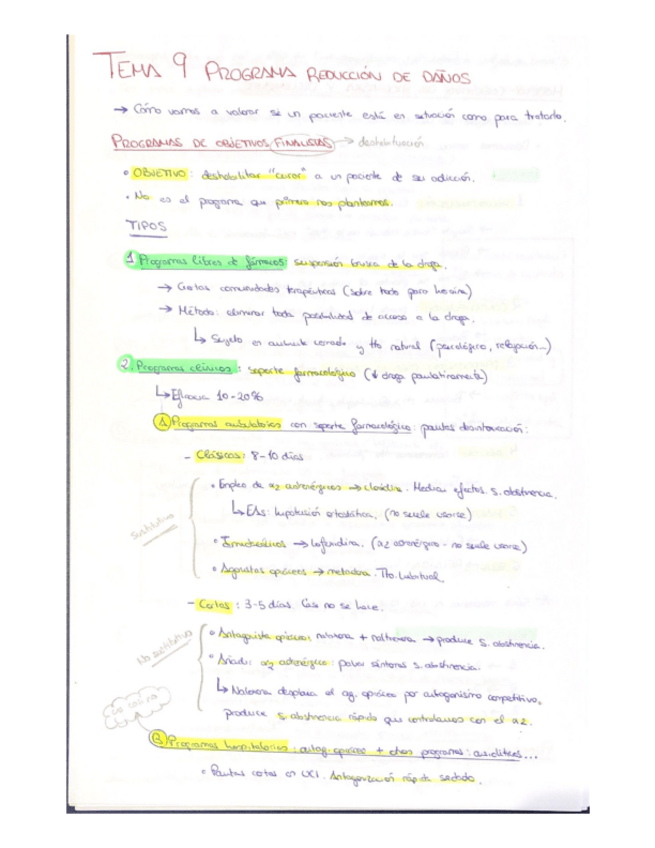 TEMA 9 PROGRAMA REDUCCIÓN DE DAÑOS
→ Cómo vamos a valorar si un paciente está en situación como para tratarlo.
PROGRAMAS DE OBJETIVOS FINALISTAS → deshabituación
• OBJETIVO: deshabilitar "curar" a un paciente de su adicción.
• No es el programa que primero nos planteamos.
TIPOS
1. Programas libres de fármacos: suspensión brusca de la droga.
→ Ciertas comunidades terapéuticas (sobre todo para heroína)
→ Método: eliminar toda posibilidad de acceso a la droga.
↳ Sujeto en ambiente cerrado y tto natural (psicológico, relajación...)
2. Programas clínicos: soporte farmacológico (↓ droga paulatinamente)
↳ Eficacia 10-20%
A) Programas ambulatorios con soporte farmacológico: pautas desintoxicación:
- Clásicas: 8-10 días
Sustitutivo
• Empleo de α2 adrenérgicos → clonidina. Median efectos s. abstinencia.
↳ EAs: hipotensión ortostática. (no suele usarse)
• → lofexidina. (α2 adrenérgico - no suele usarse)
• Agonistas opiáceos → metadona. Tto. habitual.
- Cortas: 3-5 días. Casi no se hace.
No sustitutivo
• Antagonista opiáceos: naloxona + naltrexona → produce s. abstinencia.
• Añadir α2 adrenérgico: paliar síntomas s. abstinencia.
↳ Naloxona desplaza el ag. opiáceo por antagonismo competitivo,
produce s. abstinencia rápido que controlamos con el α2.
B) Programas hospitalarios: antag. opiáceos + otros programas: ansiolíticos...
• Pautas cortas en UCI. Antagonización rápida sedado.